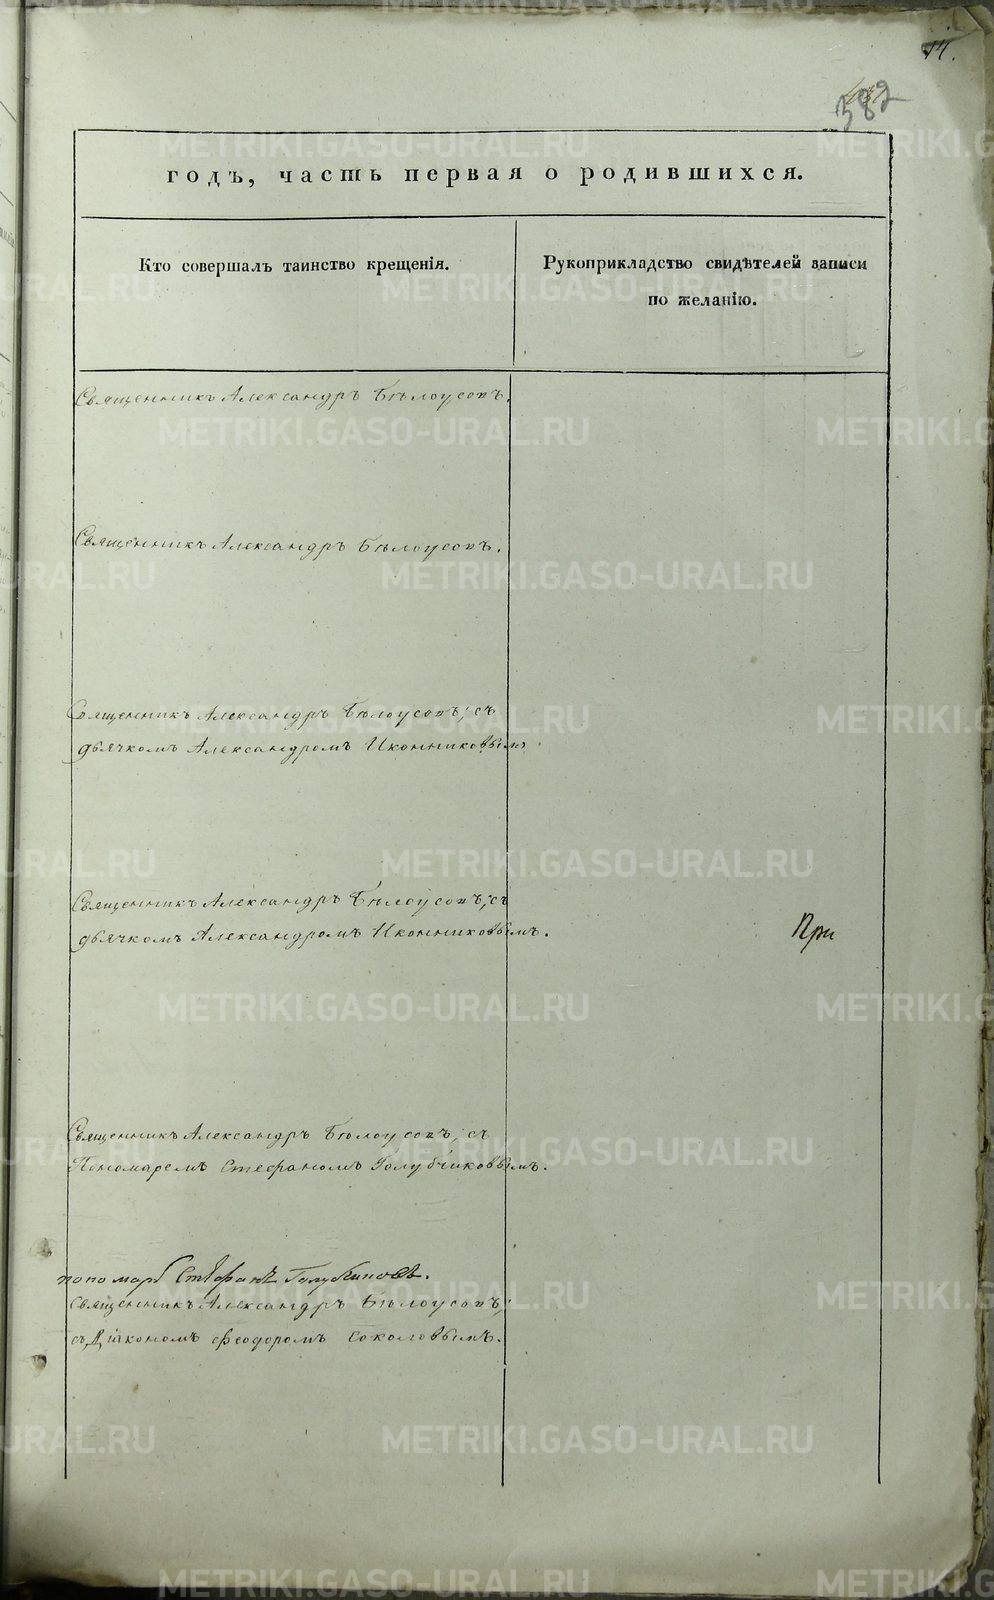 14.
382
годъ, часть первая о родившихся.
Кто совершалъ таинство крещенія.
Рукоприкладство свидѣтелей записи
по желанію.
Священникъ Александръ Бѣлоусовъ.
Священникъ Александръ Бѣлоусовъ.
Священникъ Александръ Бѣлоусовъ; съ
дьячкомъ Александромъ Иконниковымъ.
Священникъ Александръ Бѣлоусовъ; съ
дьячкомъ Александромъ Иконниковымъ.
При
Священникъ Александръ Бѣлоусовъ; съ
Пономаремъ Стефаномъ Голубчиковымъ.
пономарь Стефанъ Голубчиковъ.
Священникъ Александръ Бѣлоусовъ;
съ Діякономъ Феодоромъ Соколовымъ.
METRIKI.GASO-URAL.RU